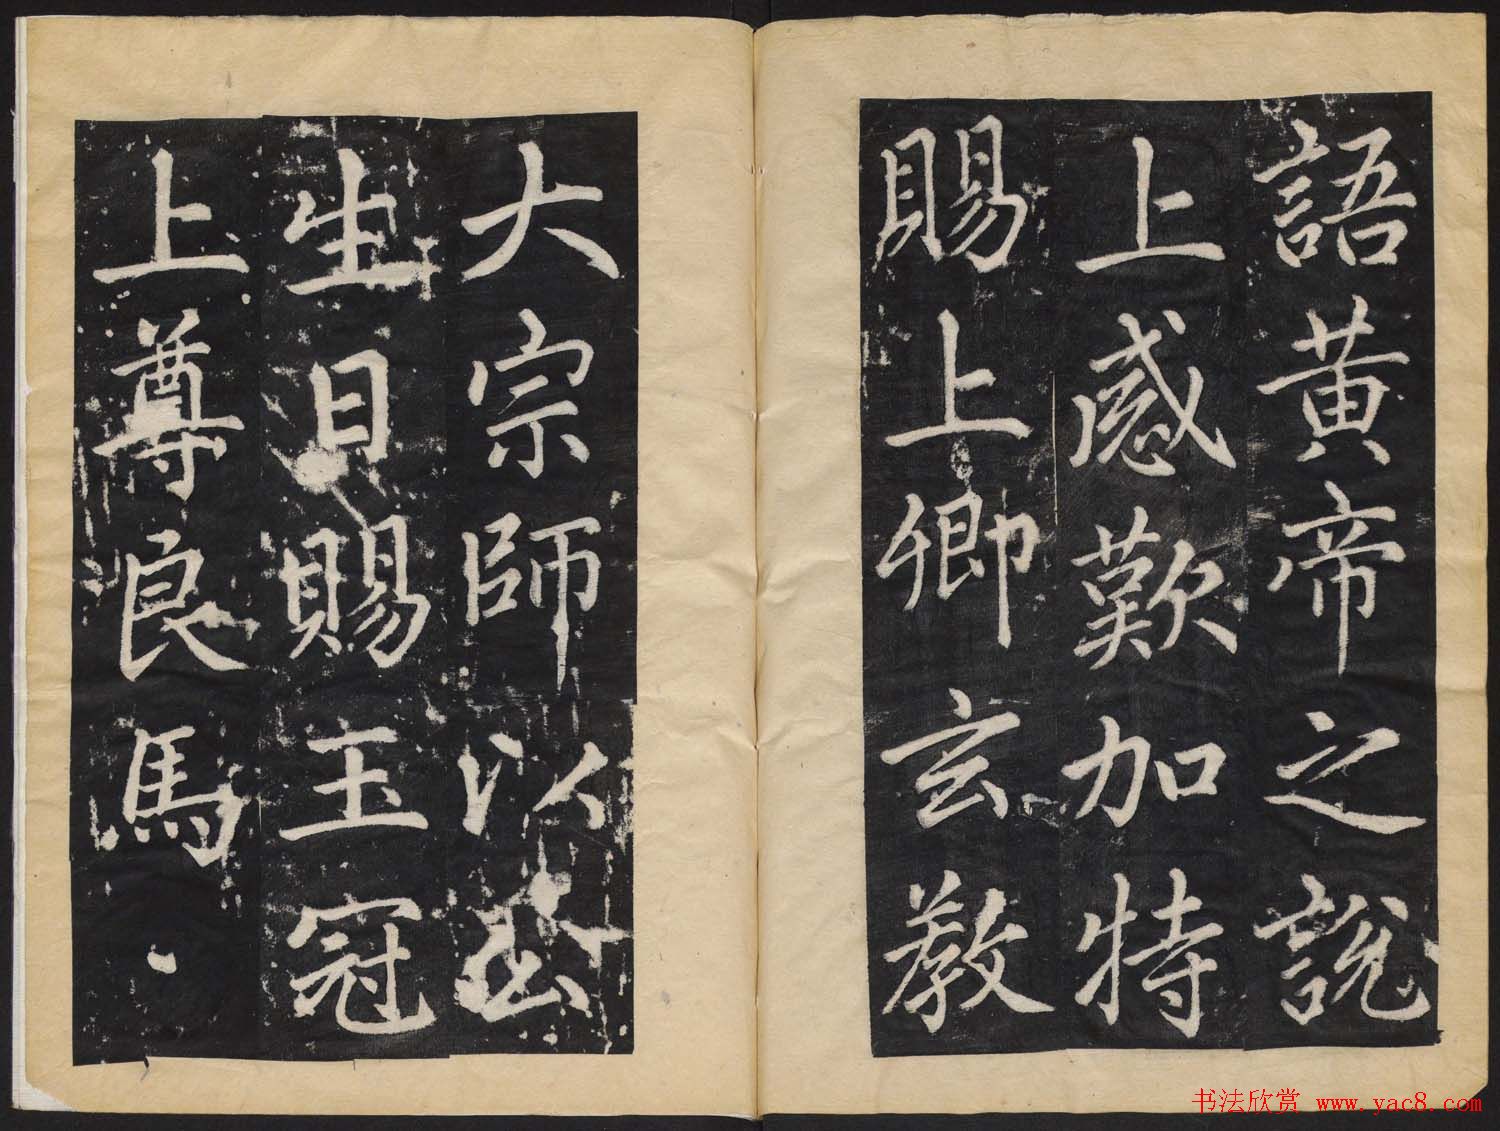 語黃帝之說
上感歎加特
賜上卿玄教
大宗師以公
生日賜玉冠
上尊良馬
书法欣赏 www.yac8.com